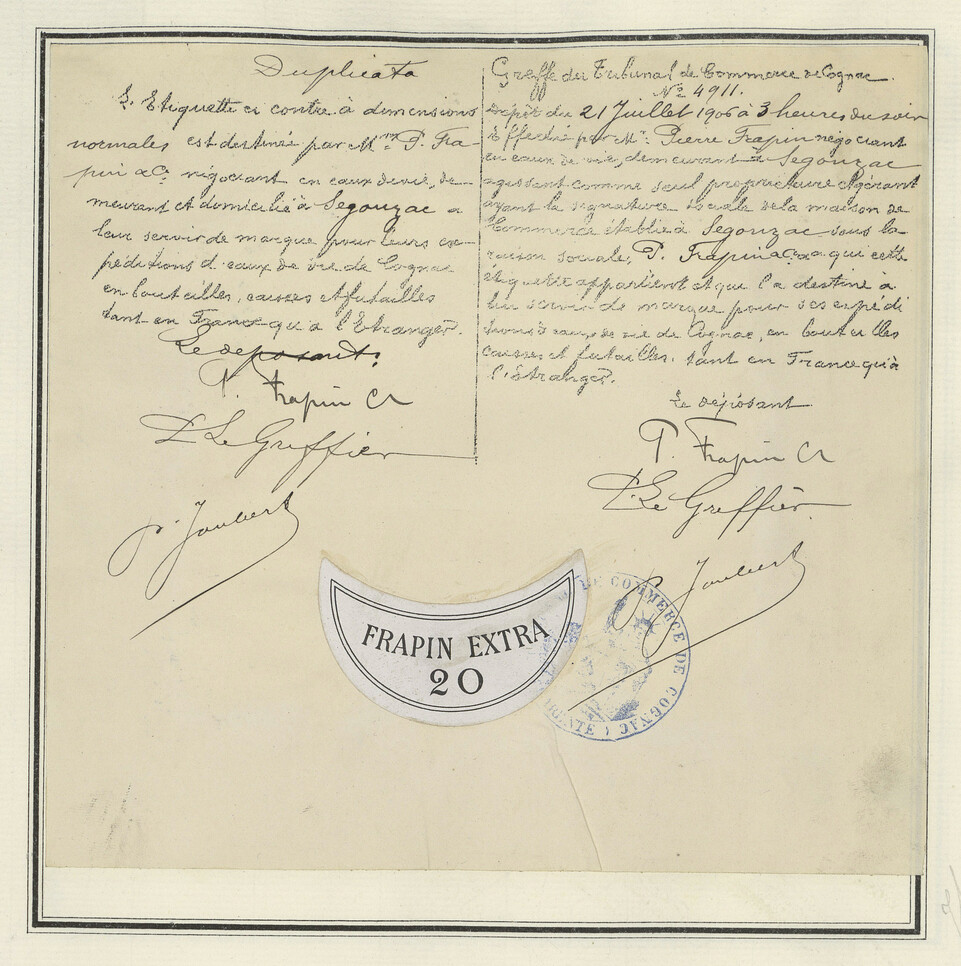 Duplicata
L'Etiquette ci contre à dimensions
normales est destiné par Mrs P. Fra-
pin & Co. négociant en eaux de vie, de-
meurant et domicilié à Segonzac a
leur servir de marque pour leurs ex-
péditions d'eaux de vie de Cognac
en bouteilles, caisses et futailles
tant en France qu'à l'Etranger.
Le deposant.
P. Frapin Co
P. Le Greffier
P. Joubert
Greffe du Tribunal de Commerce de Cognac
No 4911.
Dépôt du 21 Juillet 1906 à 3 heures du soir
Effectué par Mr. Pierre Frapin négociant
en eaux de vie, demeurant à Segonzac
agissant comme seul propriétaire et gérant
ayant la signature sociale de la maison de
Commerce établie à Segonzac sous la
raison sociale, P. Frapin & Co. a qui cette
étiquette appartient et que l'a destiné à
lui servir de marque pour ses expédi
tions d'eaux de vie de Cognac, en bouteilles
caisses et futailles, tant en France qu'à
l'étranger.
Le déposant
P. Frapin Co
P. Le Greffier
P. Joubert
FRAPIN EXTRA
20
DE COMMERCE DE COGNAC